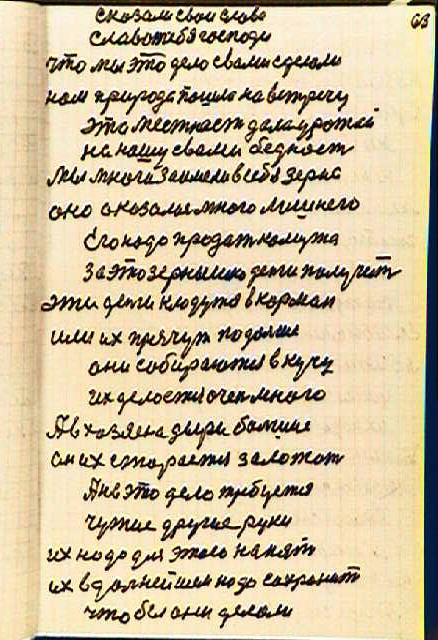 63
сказали свои слова
Слава тебя господи
что мы это дело с вами сделали
нам природа пошла на встречу
Эта местнасть дала урожай
на нашу с вами бедность
Мы многа заимели в себя зерна
оно оказалася много лишнего
Его надо продат камужа
За это зернышко денги получит
Эти денги кладутся в карман
или их прячут подалше
они собираются в кучу
их делается очен много
А в хозяена дыри болшие
он их старается заложит
А на это дело требуется
чужие другие руки
их надо для этого нанят
их в далнейшем надо сохранит
что бы они делали